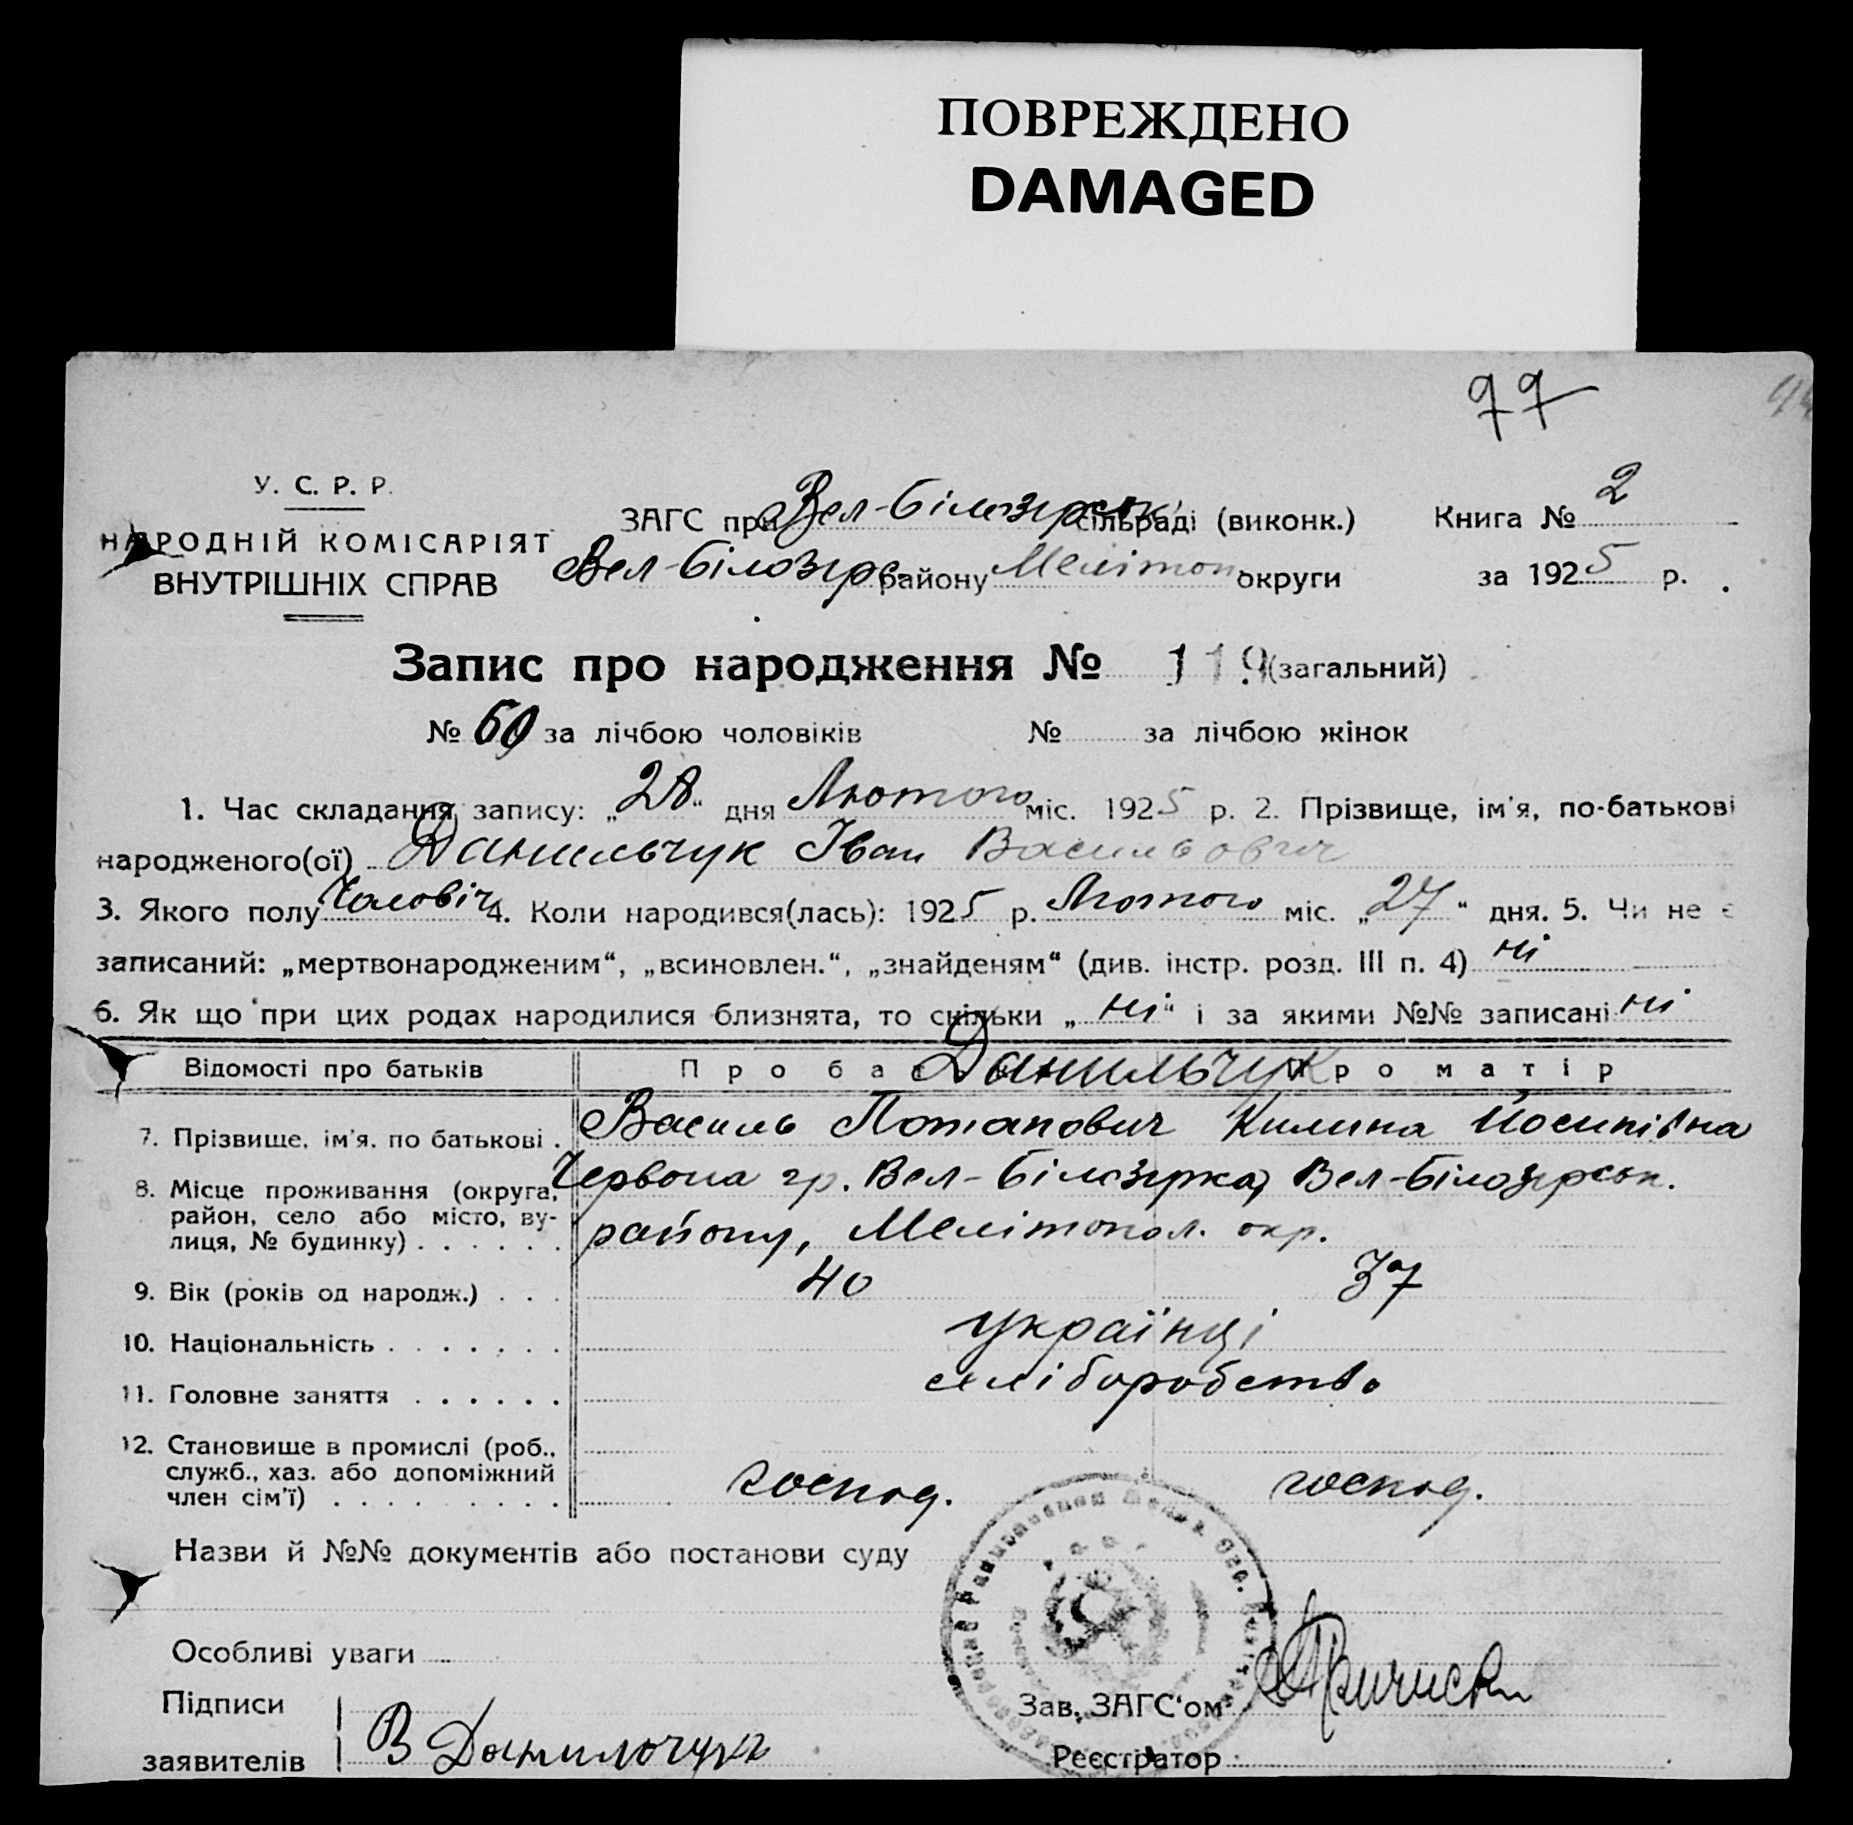 ПОВРЕЖДЕНО
DAMAGED
77
У. С. Р. Р.
НАРОДНІЙ КОМІСАРІЯТ
ВНУТРІШНІХ СПРАВ
ЗАГС при Вел-Білозірськ сільраді (виконк.) Книга № 2
Вел-Білозірс району Мелітоп округи за 1925 р.
Запис про народження № 119 (загальний)
№ 60 за лічбою чоловіків № за лічбою жінок
1. Час складання запису: „28“ дня Лютого міс. 1925 р. 2. Прізвище, ім'я, по-батькові
народженого(ої) Данильчук Іван Васильович
3. Якого полу Чоловіч 4. Коли народився(лась): 1925 р. Лютого міс. „27“ дня. 5. Чи не є
записаний: „мертвонародженим“, „всиновлен.“, „знайденям“ (див. інстр. розд. III п. 4) ні
6. Як що при цих родах народилися близнята, то скільки „ні“ і за якими №№ записані ні
Відомості про батьків Про бат Данильчук Про матір
7. Прізвище, ім'я, по батькові . Василь Потапович Килина Йосипівна
8. Місце проживання (округа, Червона гр. Вел-Білозірка, Вел-Білозірськ.
район, село або місто, ву-
лиця, № будинку) . . . . . . району, Мелітопол. окр.
9. Вік (років од народж.) . . . 40 37
10. Національність . . . . . . . українці
11. Головне заняття . . . . . . хліборобство
12. Становище в промислі (роб.,
служб., хаз. або допоміжний
член сім'ї) . . . . . . . . . господ. господ.
Назви й №№ документів або постанови суду
Особливі уваги
Підписи
заявителів В Данильчук
Зав. ЗАГС'ом
Реєстратор